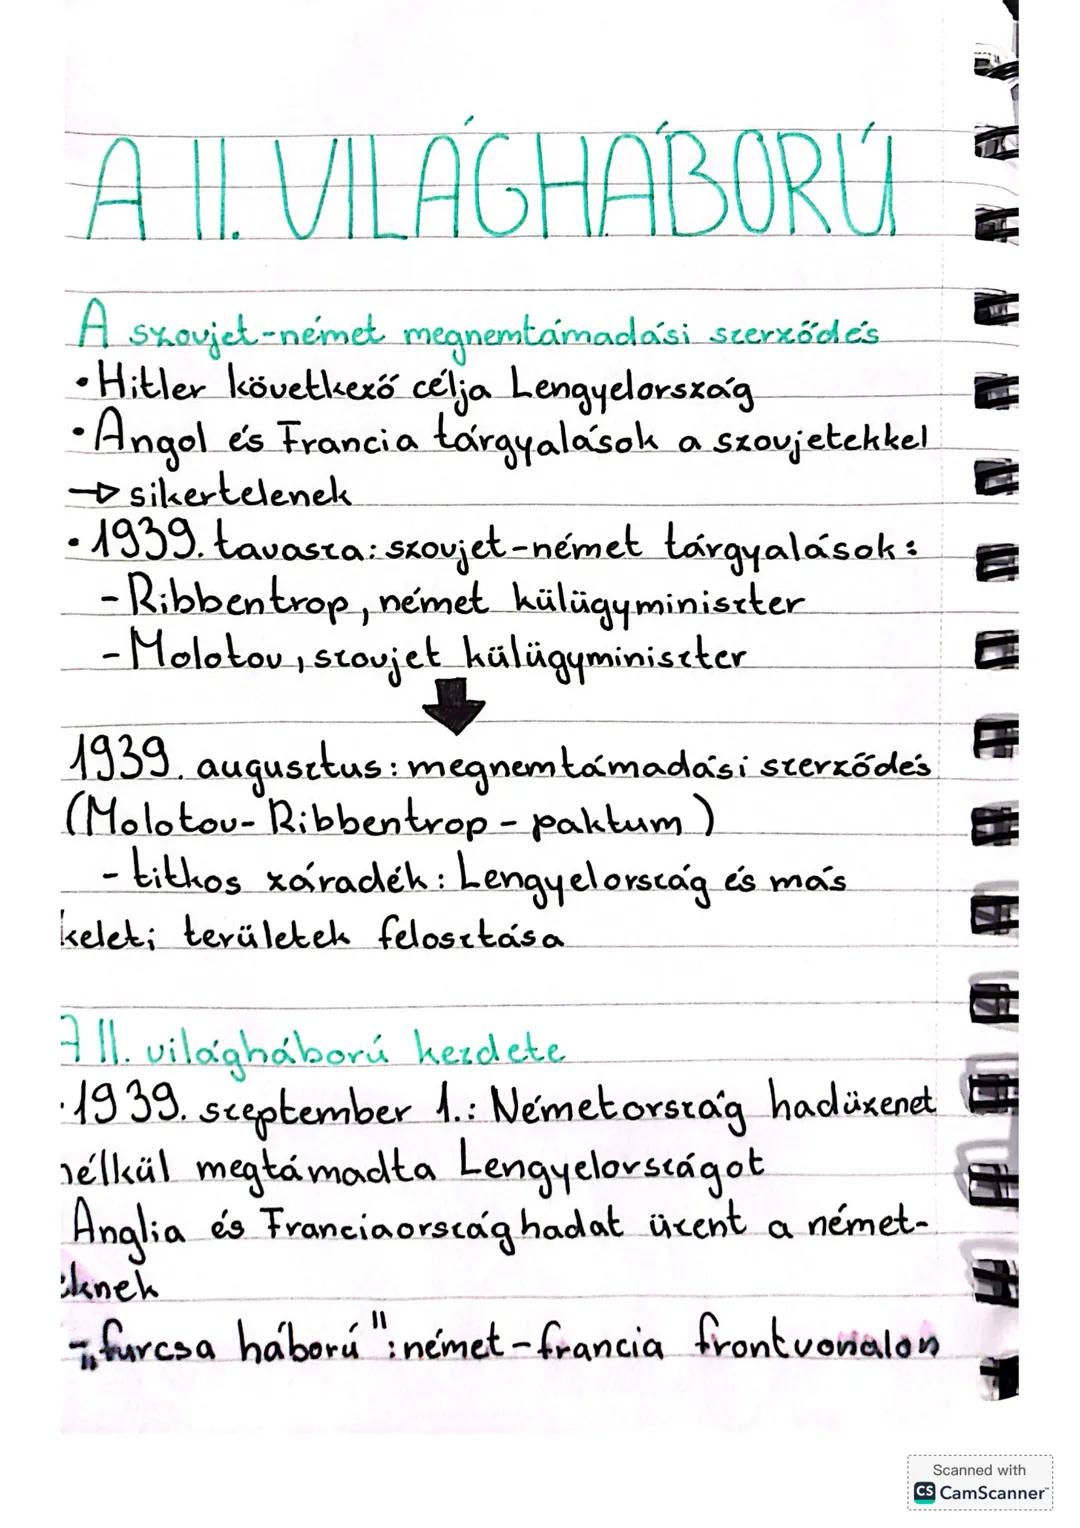 A II. VILÁGHÁBORÚ
A szovjet-német megnemtámadási szerződés
• Hitler következő célja Lengyelország
• Angol és Francia tárgyalások a szovjetekkel
→ sikertelenek
• 1939. tavasza: szovjet-német tárgyalások:
- Ribbentrop, német külügyminiszter
- Molotov, szovjet külügyminiszter
1939. augusztus: megnemtámadási szerződés
(Molotov-Ribbentrop-paktum)
- titkos záradék: Lengyelország és más
keleti területek felosztása
A II. világháború kezdete
· 1939. szeptember 1.: Németország hadüzenet
nélkül megtámadta Lengyelországot
Anglia és Franciaország hadat üzent a német-
eknek
- „furcsa háború": német-francia frontvonalon
Scanned with
CS CamScanner